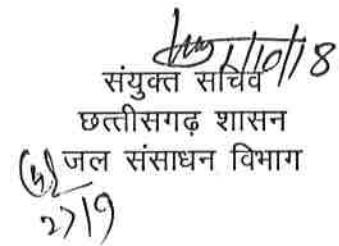 1/10/18
संयुक्त सचिव
छत्तीसगढ़ शासन
जल संसाधन विभाग
27/9